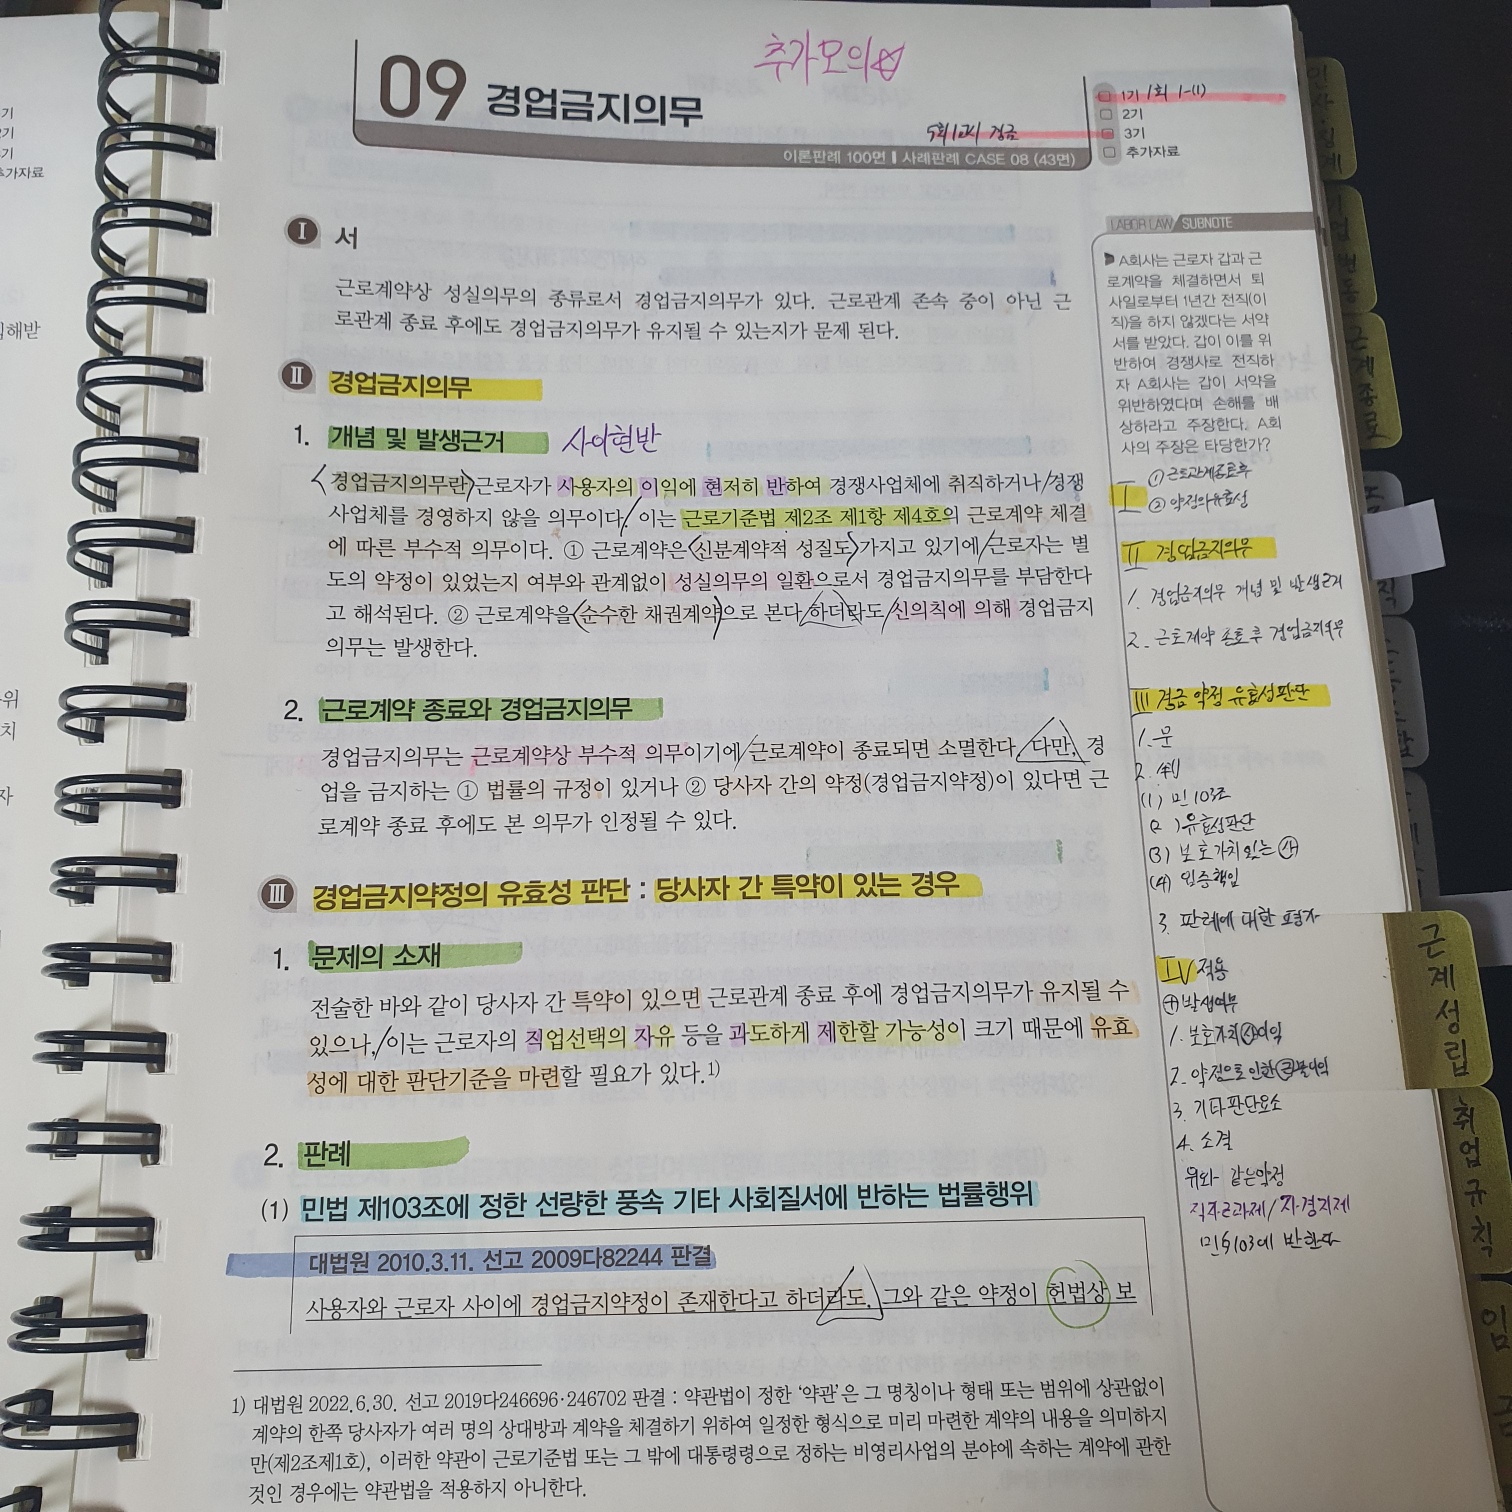 추가모의
09 경업금지의무
5회 1교시 경금
이론판례 100면 | 사례판례 CASE 08 (43면)
1기 1회 1-(1)
2기
3기
추가자료
Ⅰ 서
근로계약상 성실의무의 종류로서 경업금지의무가 있다. 근로관계 존속 중이 아닌 근
로관계 종료 후에도 경업금지의무가 유지될 수 있는지가 문제 된다.
Ⅱ 경업금지의무
1. 개념 및 발생근거 사이현반
경업금지의무란 근로자가 사용자의 이익에 현저히 반하여 경쟁사업체에 취직하거나/경쟁
사업체를 경영하지 않을 의무이다/ 이는 근로기준법 제2조 제1항 제4호의 근로계약 체결
에 따른 부수적 의무이다. ① 근로계약은 신분계약적 성질도 가지고 있기에/근로자는 별
도의 약정이 있었는지 여부와 관계없이 성실의무의 일환으로서 경업금지의무를 부담한다
고 해석된다. ② 근로계약을 순수한 채권계약으로 본다 하더라도/신의칙에 의해 경업금지
의무는 발생한다.
2. 근로계약 종료와 경업금지의무
경업금지의무는 근로계약상 부수적 의무이기에/근로계약이 종료되면 소멸한다. 다만, 경
업을 금지하는 ① 법률의 규정이 있거나 ② 당사자 간의 약정(경업금지약정)이 있다면 근
로계약 종료 후에도 본 의무가 인정될 수 있다.
Ⅲ 경업금지약정의 유효성 판단 : 당사자 간 특약이 있는 경우
1. 문제의 소재
전술한 바와 같이 당사자 간 특약이 있으면 근로관계 종료 후에 경업금지의무가 유지될 수
있으나,/이는 근로자의 직업선택의 자유 등을 과도하게 제한할 가능성이 크기 때문에 유효
성에 대한 판단기준을 마련할 필요가 있다.1)
2. 판례
(1) 민법 제103조에 정한 선량한 풍속 기타 사회질서에 반하는 법률행위
대법원 2010.3.11. 선고 2009다82244 판결
사용자와 근로자 사이에 경업금지약정이 존재한다고 하더라도, 그와 같은 약정이 헌법상 보
1) 대법원 2022.6.30. 선고 2019다246696·246702 판결 : 약관법이 정한 '약관'은 그 명칭이나 형태 또는 범위에 상관없이
계약의 한쪽 당사자가 여러 명의 상대방과 계약을 체결하기 위하여 일정한 형식으로 미리 마련한 계약의 내용을 의미하지
만(제2조제1호), 이러한 약관이 근로기준법 또는 그 밖에 대통령령으로 정하는 비영리사업의 분야에 속하는 계약에 관한
것인 경우에는 약관법을 적용하지 아니한다.
LABOR LAW SUBNOTE
A회사는 근로자 갑과 근
로계약을 체결하면서 퇴
사일로부터 1년간 전직(이
직)을 하지 않겠다는 서약
서를 받았다. 갑이 이를 위
반하여 경쟁사로 전직하
자 A회사는 갑이 서약을
위반하였다며 손해를 배
상하라고 주장한다. A회
사의 주장은 타당한가?
Ⅰ ① 근로관계종료후
② 약정의 유효성
Ⅱ 경업금지의무
1. 경업금지의무 개념 및 발생근거
2. 근로계약 종료 후 경업금지의무
Ⅲ 경금 약정 유효성판단
1. 문
2. 判
(1) 민 103조
(2) 유효성판단
(3) 보호가치있는 사
(4) 입증책임
3. 판례에 대한
Ⅳ 적용
발생여부
1. 보호가치 사 이익
2. 약정으로 인한 근 불이익
3. 기타판단요소
4. 소결
위와 같은약정
직자 과제/자경지제
민§103에 반한다
인사·징계
기업변동
근계종료
근계성립
취업규칙
임금